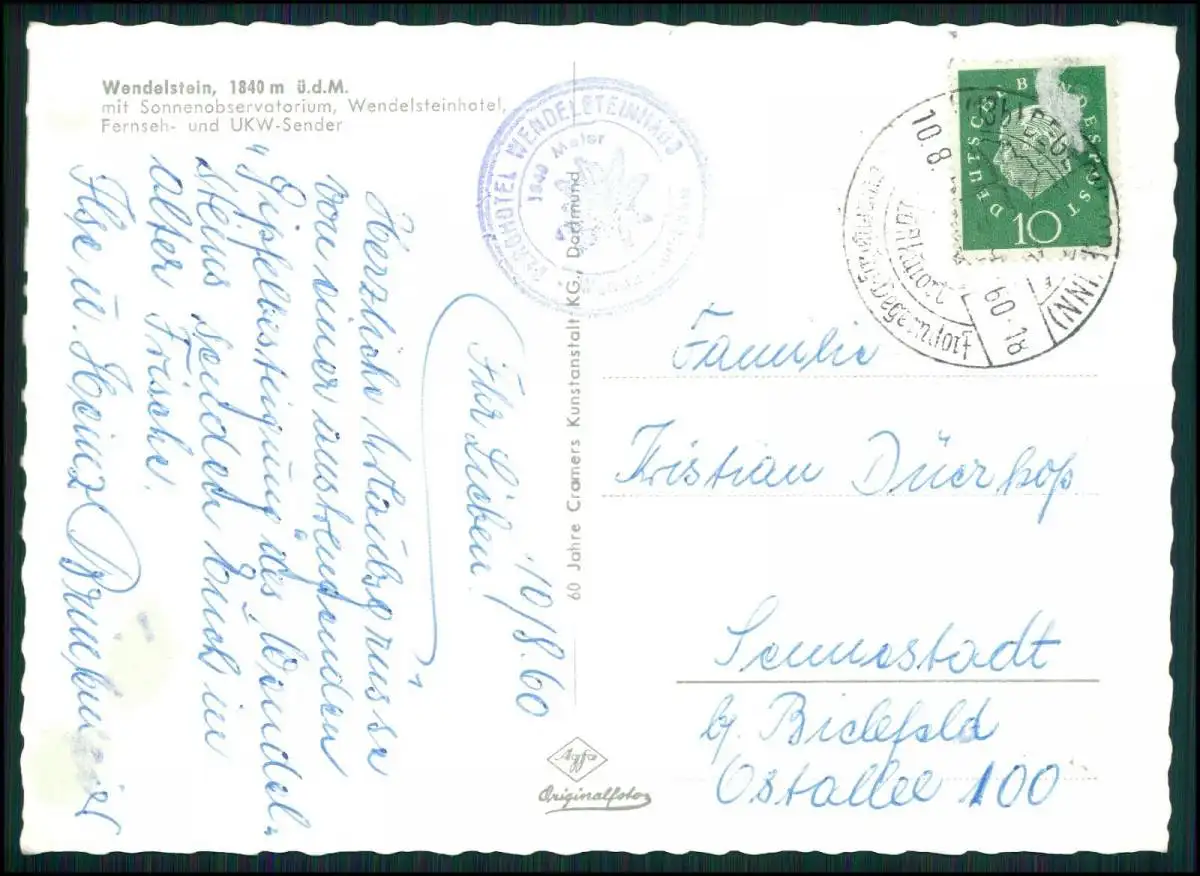 Wendelstein, 1840 m ü.d.M.
mit Sonnenobservatorium, Wendelsteinhotel,
Fernseh- und UKW-Sender
BERGHOTEL WENDELSTEINHAUS
1840 Meter
DEUTSCHE BUNDESPOST
10
10.8.
60-18
(INN)
10/8.60
Ihr Lieben!
Herzliche Urlaubsgrüsse
von einer anstrengenden
"Gipfelbesteigung des "Wendel-
steins senden Euch in
alter Frische.
Ilse u. Heinz
60 Jahre Cramers Kunstanstalt KG., Dortmund
Familie
Kristian Dückhop
Sennestadt
b/ Bielefeld
Ostallee 100
Agfa
Originalfoto